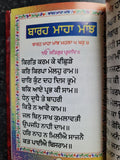 ਬਾਰਹ ਮਾਹਾ ਮਾਂਝ
ਬਾਰਹ ਮਾਹਾ ਮਾਂਝ ਮਹਲਾ ੫ ਘਰੁ ੪
ੴ ਸਤਿਗੁਰ ਪ੍ਰਸਾਦਿ॥
ਕਿਰਤਿ ਕਰਮ ਕੇ ਵੀਛੁੜੇ
ਕਰਿ ਕਿਰਪਾ ਮੇਲਹੁ ਰਾਮ॥
ਚਾਰਿ ਕੁੰਟ ਦਹ ਦਿਸ ਭ੍ਰਮੇ
ਥਕਿ ਆਏ ਪ੍ਰਭ ਕੀ ਸਾਮ॥
ਧੇਨੁ ਦੁਧੈ ਤੇ ਬਾਹਰੀ
ਕਿਤੈ ਨ ਆਵੈ ਕਾਮ॥
ਜਲ ਬਿਨੁ ਸਾਖ ਕੁਮਲਾਵਤੀ
ਉਪਜਹਿ ਨਾਹੀ ਦਾਮ॥
ਹਰਿ ਨਾਹ ਨ ਮਿਲੀਐ ਸਾਜਨੈ
ਕਤ ਪਾਈਐ ਬਿਸਰਾਮ॥